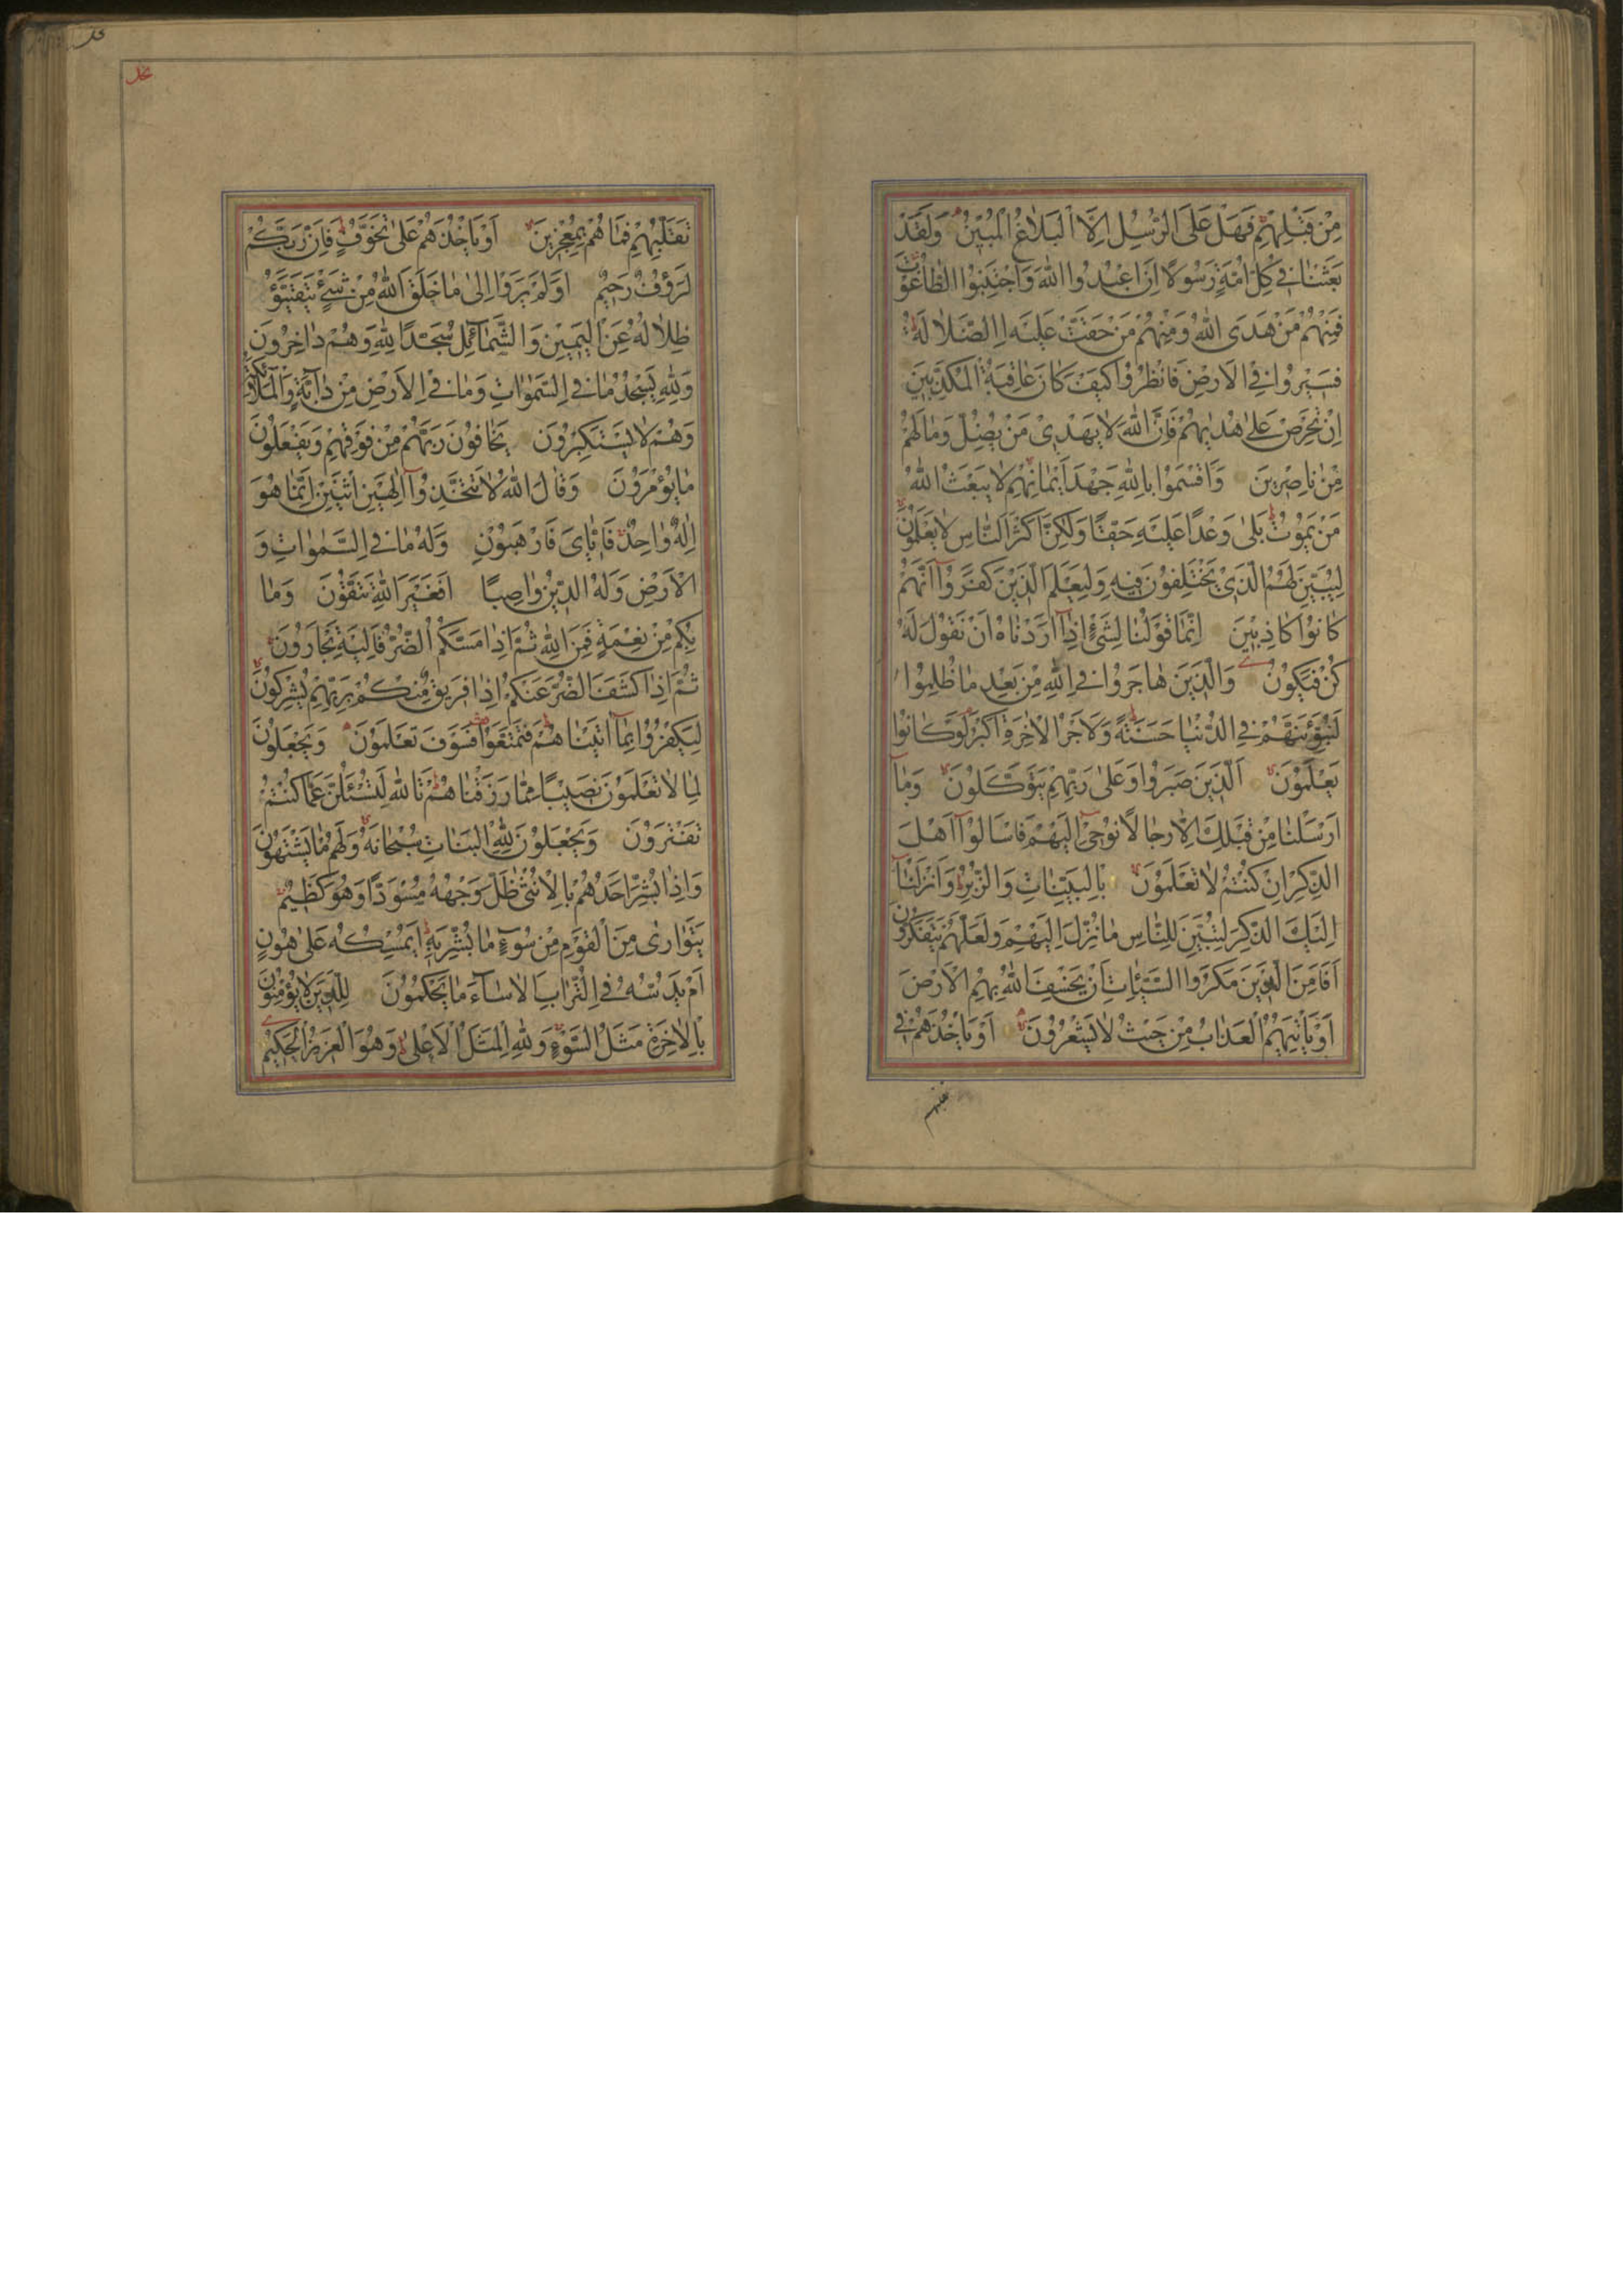 مِنْ قَبْلِهِمْ فَهَلْ عَلَى الرُّسُلِ اِلَّا الْبَلَاغُ الْمُبِينُ وَلَقَدْ
بَعَثْنَا فِي كُلِّ اُمَّةٍ رَسُولًا اَنِ اعْبُدُوا اللّٰهَ وَاجْتَنِبُوا الطَّاغُوتَ
فَمِنْهُمْ مَنْ هَدَى اللّٰهُ وَمِنْهُمْ مَنْ حَقَّتْ عَلَيْهِ الضَّلَالَةُ
فَسِيرُوا فِي الْاَرْضِ فَانْظُرُوا كَيْفَ كَانَ عَاقِبَةُ الْمُكَذِّبِينَ
اِنْ تَحْرِصْ عَلٰى هُدٰيهُمْ فَاِنَّ اللّٰهَ لَا يَهْدِي مَنْ يُضِلُّ وَمَا لَهُمْ
مِنْ نَاصِرِينَ وَاَقْسَمُوا بِاللّٰهِ جَهْدَ اَيْمَانِهِمْ لَا يَبْعَثُ اللّٰهُ
مَنْ يَمُوتُ بَلٰى وَعْدًا عَلَيْهِ حَقًّا وَلٰكِنَّ اَكْثَرَ النَّاسِ لَا يَعْلَمُونَ
لِيُبَيِّنَ لَهُمُ الَّذِي يَخْتَلِفُونَ فِيهِ وَلِيَعْلَمَ الَّذِينَ كَفَرُوا اَنَّهُمْ
كَانُوا كَاذِبِينَ اِنَّمَا قَوْلُنَا لِشَيْءٍ اِذَا اَرَدْنَاهُ اَنْ نَقُولَ لَهُ
كُنْ فَيَكُونُ وَالَّذِينَ هَاجَرُوا فِي اللّٰهِ مِنْ بَعْدِ مَا ظُلِمُوا
لَنُبَوِّئَنَّهُمْ فِي الدُّنْيَا حَسَنَةً وَلَاَجْرُ الْاٰخِرَةِ اَكْبَرُ لَوْ كَانُوا
يَعْلَمُونَ اَلَّذِينَ صَبَرُوا وَعَلٰى رَبِّهِمْ يَتَوَكَّلُونَ وَمَا
اَرْسَلْنَا مِنْ قَبْلِكَ اِلَّا رِجَالًا نُوحِي اِلَيْهِمْ فَاسْاَلُوا اَهْلَ
الذِّكْرِ اِنْ كُنْتُمْ لَا تَعْلَمُونَ بِالْبَيِّنَاتِ وَالزُّبُرِ وَاَنْزَلْنَا
اِلَيْكَ الذِّكْرَ لِتُبَيِّنَ لِلنَّاسِ مَا نُزِّلَ اِلَيْهِمْ وَلَعَلَّهُمْ يَتَفَكَّرُونَ
اَفَاَمِنَ الَّذِينَ مَكَرُوا السَّيِّئَاتِ اَنْ يَخْسِفَ اللّٰهُ بِهِمُ الْاَرْضَ
اَوْ يَاْتِيَهُمُ الْعَذَابُ مِنْ حَيْثُ لَا يَشْعُرُونَ اَوْ يَاْخُذَهُمْ فِي
تَقَلُّبِهِمْ فَمَا هُمْ بِمُعْجِزِينَ اَوْ يَاْخُذَهُمْ عَلٰى تَخَوُّفٍ فَاِنَّ رَبَّكُمْ
لَرَؤُفٌ رَحِيمٌ اَوَلَمْ يَرَوْا اِلٰى مَا خَلَقَ اللّٰهُ مِنْ شَيْءٍ يَتَفَيَّؤُ
ظِلَالُهُ عَنِ الْيَمِينِ وَالشَّمَائِلِ سُجَّدًا لِلّٰهِ وَهُمْ دَاخِرُونَ
وَلِلّٰهِ يَسْجُدُ مَا فِي السَّمٰوَاتِ وَمَا فِي الْاَرْضِ مِنْ دَابَّةٍ وَالْمَلَائِكَةُ
وَهُمْ لَا يَسْتَكْبِرُونَ يَخَافُونَ رَبَّهُمْ مِنْ فَوْقِهِمْ وَيَفْعَلُونَ
مَا يُؤْمَرُونَ وَقَالَ اللّٰهُ لَا تَتَّخِذُوا اِلٰهَيْنِ اثْنَيْنِ اِنَّمَا هُوَ
اِلٰهٌ وَاحِدٌ فَاِيَّايَ فَارْهَبُونِ وَلَهُ مَا فِي السَّمٰوَاتِ وَ
الْاَرْضِ وَلَهُ الدِّينُ وَاصِبًا اَفَغَيْرَ اللّٰهِ تَتَّقُونَ وَمَا
بِكُمْ مِنْ نِعْمَةٍ فَمِنَ اللّٰهِ ثُمَّ اِذَا مَسَّكُمُ الضُّرُّ فَاِلَيْهِ تَجْاَرُونَ
ثُمَّ اِذَا كَشَفَ الضُّرَّ عَنْكُمْ اِذَا فَرِيقٌ مِنْكُمْ بِرَبِّهِمْ يُشْرِكُونَ
لِيَكْفُرُوا بِمَا اٰتَيْنَاهُمْ فَتَمَتَّعُوا فَسَوْفَ تَعْلَمُونَ وَيَجْعَلُونَ
لِمَا لَا تَعْلَمُونَ نَصِيبًا مِمَّا رَزَقْنَاهُمْ تَاللّٰهِ لَتُسْئَلُنَّ عَمَّا كُنْتُمْ
تَفْتَرُونَ وَيَجْعَلُونَ لِلّٰهِ الْبَنَاتِ سُبْحَانَهُ وَلَهُمْ مَا يَشْتَهُونَ
وَاِذَا بُشِّرَ اَحَدُهُمْ بِالْاُنْثٰى ظَلَّ وَجْهُهُ مُسْوَدًّا وَهُوَ كَظِيمٌ
يَتَوَارٰى مِنَ الْقَوْمِ مِنْ سُوءِ مَا بُشِّرَ بِهِ اَيُمْسِكُهُ عَلٰى هُونٍ
اَمْ يَدُسُّهُ فِي التُّرَابِ اَلَا سَاءَ مَا يَحْكُمُونَ لِلَّذِينَ لَا يُؤْمِنُونَ
بِالْاٰخِرَةِ مَثَلُ السَّوْءِ وَلِلّٰهِ الْمَثَلُ الْاَعْلٰى وَهُوَ الْعَزِيزُ الْحَكِيمُ